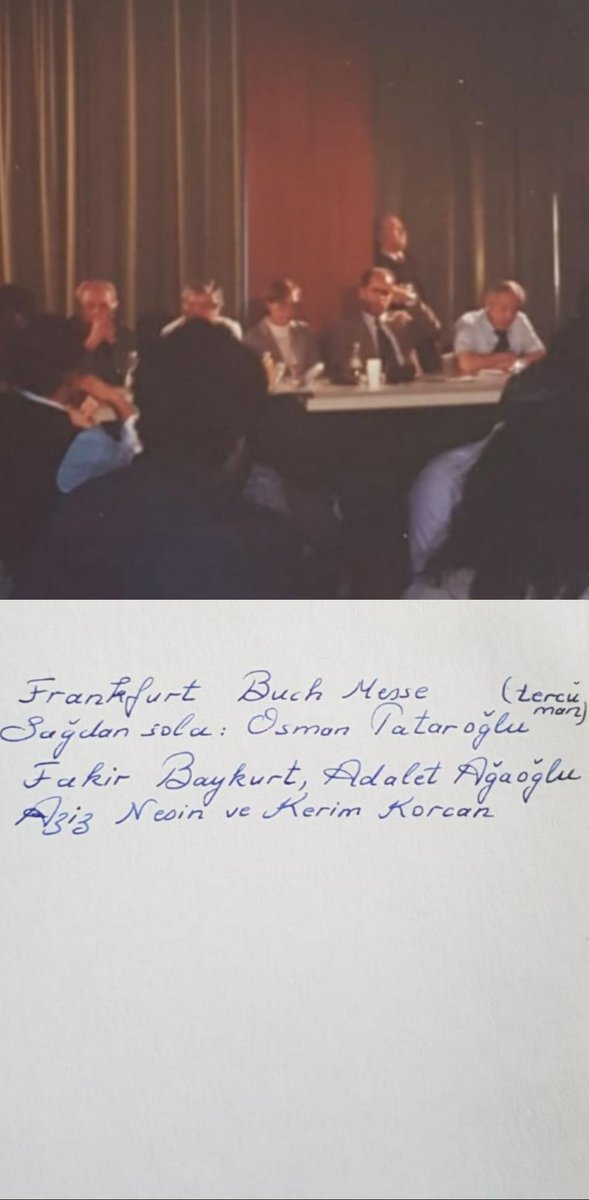 Frankfurt Buch Messe (tercü
man)
Sağdan sola: Osman Tataroğlu
Fakir Baykurt, Adalet Ağaoğlu
Aziz Nesin ve Kerim Korcan